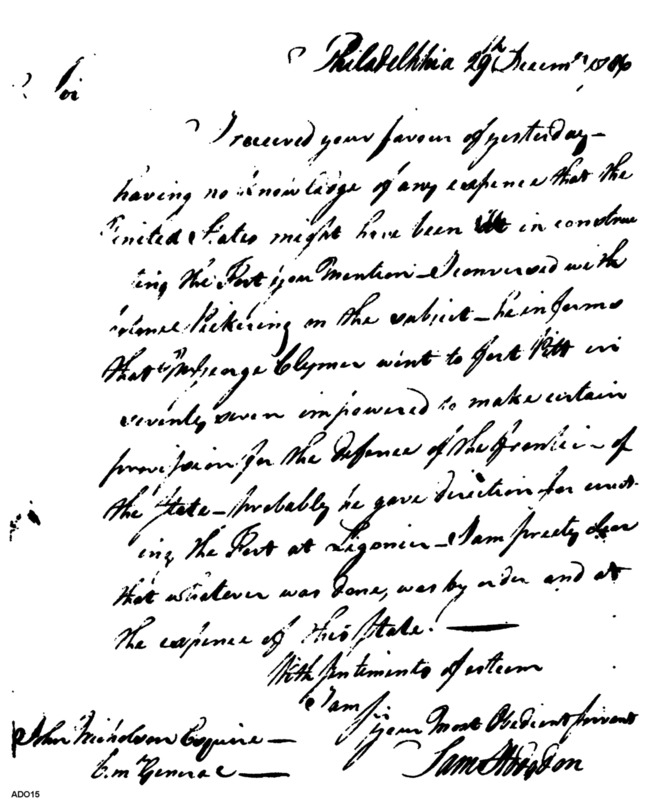 Philadelphia 29th Decemr 1786
Sir
I received your favour of yesterday—
having no knowledge of any expence that the
United States might have been at in construc
ting the Fort you Mention—I conversed with
Colonel Pickering on the subject—he informs
that Mr George Clymer went to fort Pitt in
seventy seven impowered to make certain
provision for the defence of the frontier of
the State—probably he gave direction for erect-
ing the Fort at Ligonier—I am pretty clear
that whatever was done, was by order and at
the expence of this State.—
With sentiments of esteem
I am
your Most Obedient servant
Sam Hodgdon
John Nicholson Esquire—
C. m General—
ADO15